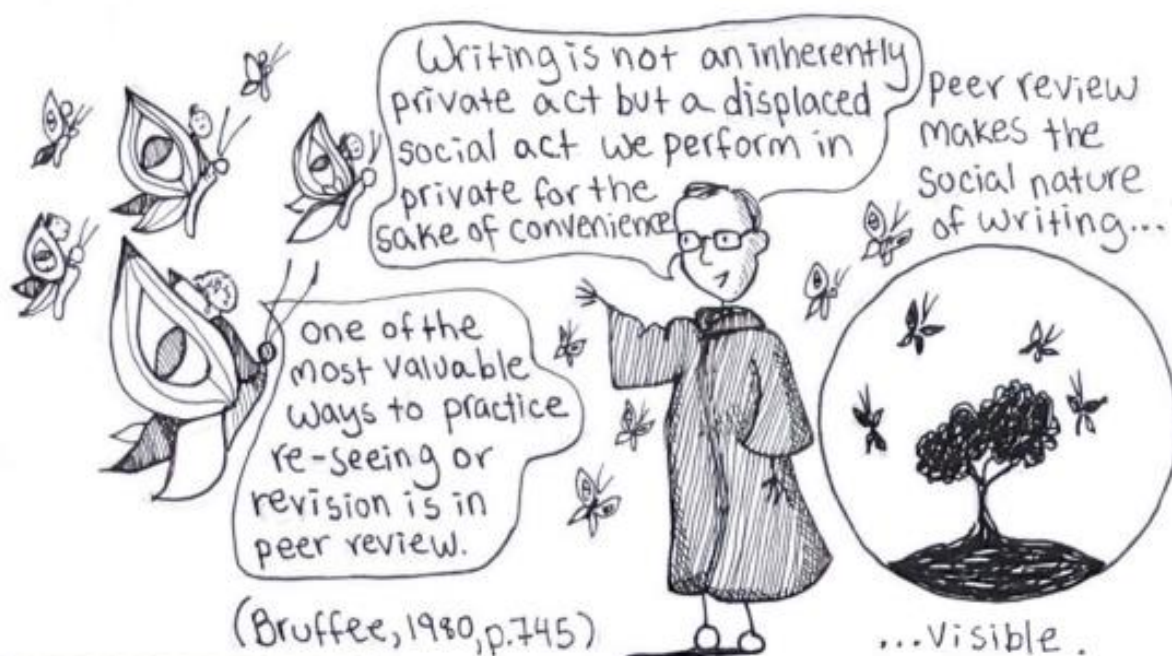 Writing is not an inherently
private act but a displaced
social act we perform in
private for the
sake of convenience
peer review
makes the
social nature
of writing...
one of the
most valuable
ways to practice
re-seeing or
revision is in
peer review.
(Bruffee, 1980, p.745)
...visible.